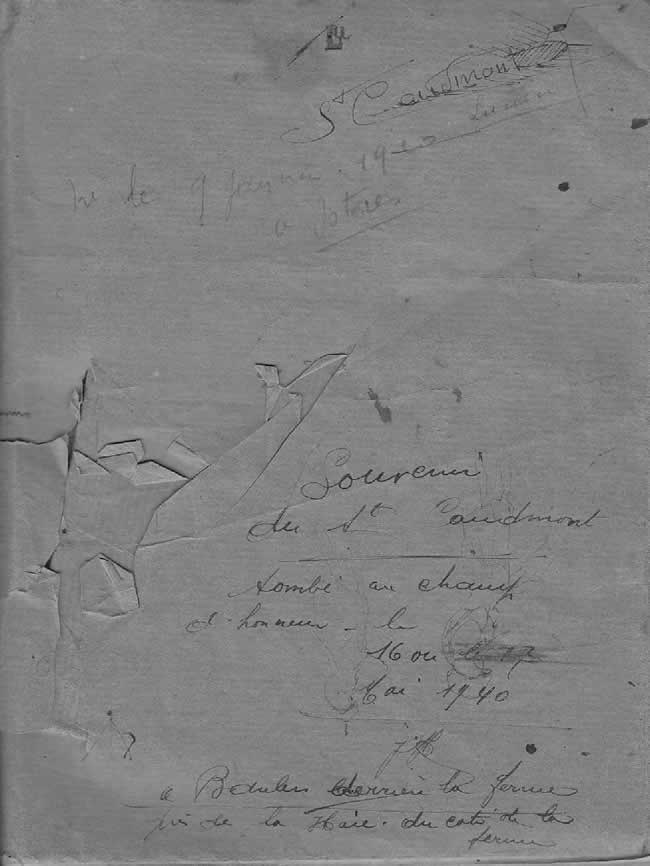 St Caudmont
de 9 1920
a
Souvenir
du St Caudmont
tombé au champ
d'honneur - le
16 ou le 17
Mai 1940
a derrière la ferme
près de la Haie - du coté de la
ferme